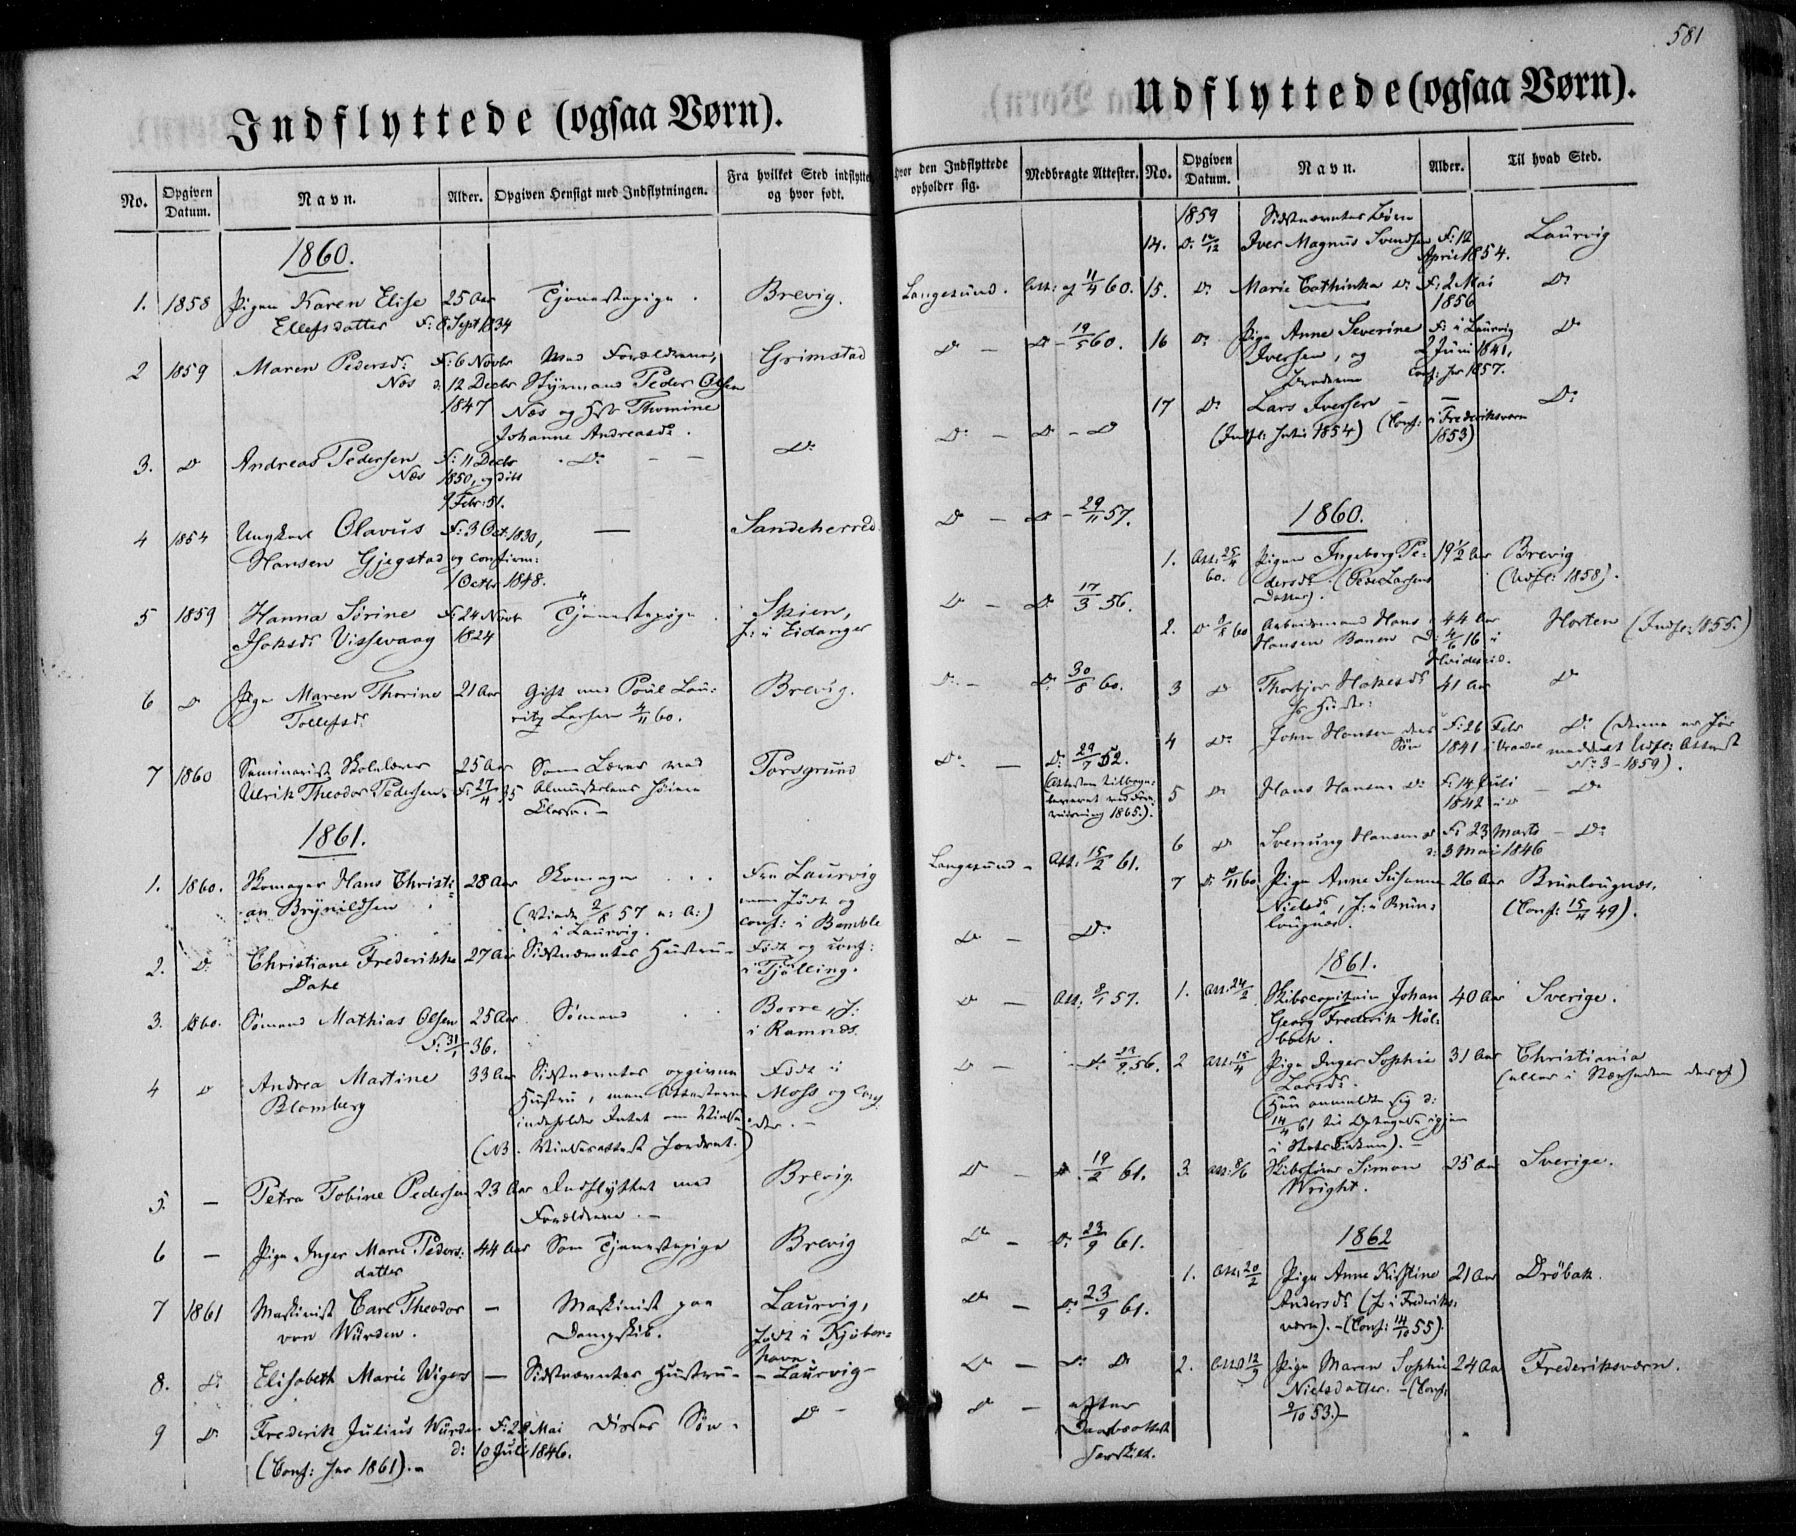 581
Indflyttede (ogsaa Børn).
No.
Opgiven Datum.
Navn.
Alder.
Opgiven Hensigt med Indflytningen.
Fra hvilket Sted indflyttet og hvor født.
1860.
1. 1858 Pigen Karen Elise 25 Aar Tjenestepige. Brevig.
Ellefsdatter F: 8 Sept 1834
2 1859 Maren Pedersdr F: 6 Novbr Med Forældrene, Grimstad
Næs d: 12 Decbr Styrmand Peder Olsen
1847 Næs og Hst Thomine
Johanne Andreasdr.
3. Do Andreas Pedersen F: 11 Decbr Do — — Do
Næs 1850, og døbt
9 Febr: 51.
4 1854 Ungkarl Olavus F: 3 Oct 1830, — Sandeherred
Hansen Gjegstad og confirm:
1 Octbr 1848.
5 1859 Hanna Sörine F: 24 Novbr Tjenestepige. Skien,
Isaksdr Vissevaag 1824 F: i Eidanger
6 Do Pige Maren Thorine 21 Aar Gift med Poul Lau- Brevig.
Tollefsdr ritz Larsen 4/11 60.
7 1860 Seminarist Skolelærer 25 Aar Som Lærer ved Porsgrund
Ulrik Theodor Pedersen. F: 27/4 35 Almueskolens høiere
Classe. —
1861.
1. 1860. Skomager Hans Christi- 28 Aar Skomager . . Fra Laurvig
an Brynildsen (Viede 2/8 57 i Laurvig. men født og conf: i Bamble
2. Do Christiane Frederikke 27 Aar Sidstnævntes Hustru — Født og conf:
Dahl i Tjølling.
3. 1860. Sømand Mathias Olsen 25 Aar Sømand . . Borre, f:
F: 31/1 36. i Ramnæs.
4 Do Andrea Martine 33 Aar Sidstnævntes opgivne Født i
Blomberg Hustru, men Attesterne Moss og conf
indeholder Intet om Vielse der. —
(NB. Vielsesattest fordret.)
5. — Petra Tobine Pedersen 23 Aar Indflyttet med Brevig.
Forældrene. —
6 — Pige Inger Marie Peders- 44 Aar Som Tjenestepige Brevig
datter
7 1861 Maskinist Carl Theodor — Maskinist paa Laurvig,
von Würden. Dampskib. født i Kjøben-
havn.
8. Do Elisabeth Marie Wiger — Sidstnævntes Hustru — Laurvig —
9 Do Frederik Julius Würden F: 28 Mai Disses Søn — Do —
(Conf: her 1861). — d: 10 Juli 1846.
Udflyttede (ogsaa Børn).
Hvor den Indflyttede opholder sig.
Medbragte Attester.
No.
Opgiven Datum.
Navn.
Alder.
Til hvad Sted.
Langesund. Att: af 11/4 60.
Do — Do — 19/5 60.
Do — Do — Do
Do — Do — 29/11 57.
Do — Do 17/3 56.
Do — Do 30/8 60.
Do — Do 29/7 52.
(Attesten tilbage-
leveret ved
1865).
Langesund — Att: 15/2 61.
Do — Do
Do — Att: 8/1 57.
Do — Do 23/9 56.
Do — Do 19/2 61.
Do — Do 23/9 61.
Do — Do 23/9 61.
Do — Do Do
Do — efter
Daabsattest
1859 Sidstnævntes Børn
14. Do 12/12 Iver Magnus Svendsen F: 12 Laurvig
April 1854.
15. Do Marie Cathinka Do F: 2 Mai Do
1856
16 Do Pige Anne Severine F: i Laurvig Do
Iversen, og 2 Juni 1841,
Broderen Conf: her 1857.
17 Do Lars Iversen — — Do
(Indfl: 1854) (Conf: i Frederiksværn
1853)
1860.
1. Att: 25/4 60. Pigen Ingeborg Pe- 19 1/2 Aar Brevig
dersdr. (Peder Larsens (Udfl: 1858).
Datter).
2. Do 2/8 60 Arbeidsmand Hans 44 Aar Horten (Indfl: 1855.)
Hansen Banen F: 4/6 16 i
Hvideseid.
3 Do Thorbjør 41 Aar Do
Hustr:
4 Do John Hansen deres F: 26 Febr Do (denne er før
Søn 1841 i Vraadal meddelt Udfl: Attest
No: 3 - 1859).
5 Do Hans Hansen Do F: 14 Juli — Do
1842 i Do
6 Do Svenung Hansen Do F: 23 Marts — Do
d: 3 Mai 1846
7 Do 10/11 60 Pige Anne Susanne 26 Aar Brunlougnæs.
Nielsdr, f: i Brun- (Conf: 15/ 49).
lougnæs.
1861.
1. Att: 24/2 Skibscapitain Johan 40 Aar Sverige.
Georg Frederik Möl-
back.
2 Att: 15/4 Pige Inger Sophie 31 Aar Christiania
Larsdr. (eller i Nærheden deraf)
(Hun anmeldte sig d:
14/4 61 til Optagelse igjen
i Statskirken). —
3. Att: 8/6 Skibsfører Simon 25 Aar Sverige.
Wright.
1862
1. Att: 20/2 Pige Anne Kirstine 21 Aar Drøbak.
Andersdr (f: i Frederiks-
værn). — (Conf: 14/10 55).
2. Att: 12/9 Pige Maren Sophie 24 Aar Frederiksværn.
Nielsdatter. — (Conf:
2/10 53.) —